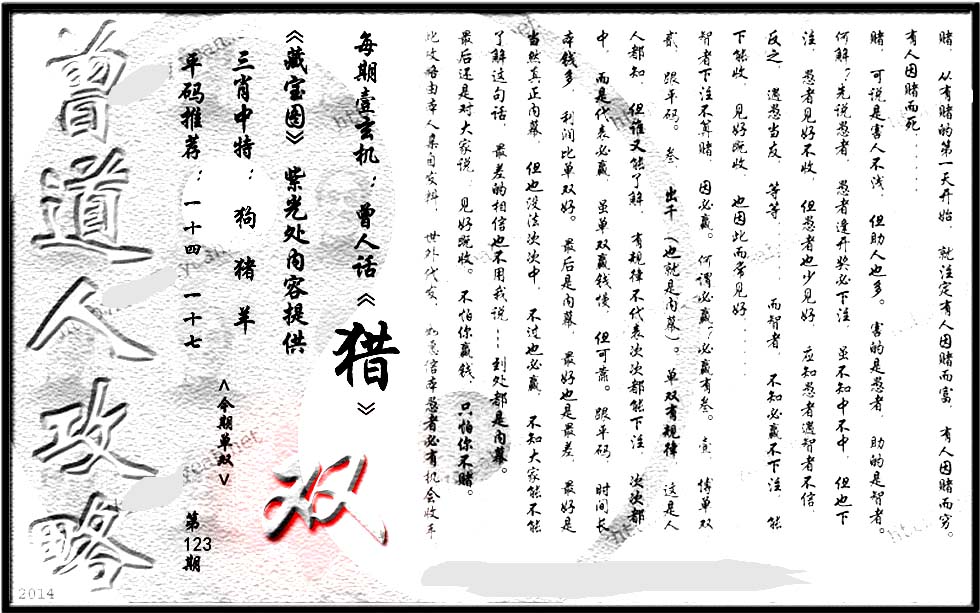 赌，从有赌的第一天开始，就注定有人因赌而富，有人因赌而穷。
有人因赌而死……
赌，可说是害人不浅，但助人也多。害的是愚者，助的是智者。
何解？先说愚者，愚者逢开奖必下注，虽不知中不中，但也下
注，愚者见好不收，但愚者也少见好，应知愚者遇智者不信，
反之，遇愚当友，等等……而智者，不知必赢不下注，能
下能收，见好既收，也因此而常见好……
智者下注不算赌，因必赢。何谓必赢？必赢有叁。壹，博单双，
贰，跟平码。叁，出千（也就是内幕）。单双有规律，这是人
人都知，但谁又能了解，有规律不代表次次都能下注，次次都
中，而是代表必赢，虽单双赢钱慢，但可靠。跟平码，时间长
本钱多，利润比单双好。最后是内幕，最好也是最差，最好是
当然真正内幕，但也没法次次中，不过也必赢，不知大家能不
了解这句话，最差的相信也不用我说……到处都是内幕。
最后还是对大家说，见好既收。不怕你赢钱，只怕你不赌。
此攻略由本人亲自发料，世外代发，如愚信本愚者必有机会收手
每期壹玄机：曾人话《猎》
《藏宝图》紫光处内容提供
三肖中特：狗 猪 羊
平码推荐：一十四 一十七
<今期单双>
双
第123期
曾道人攻略
2014